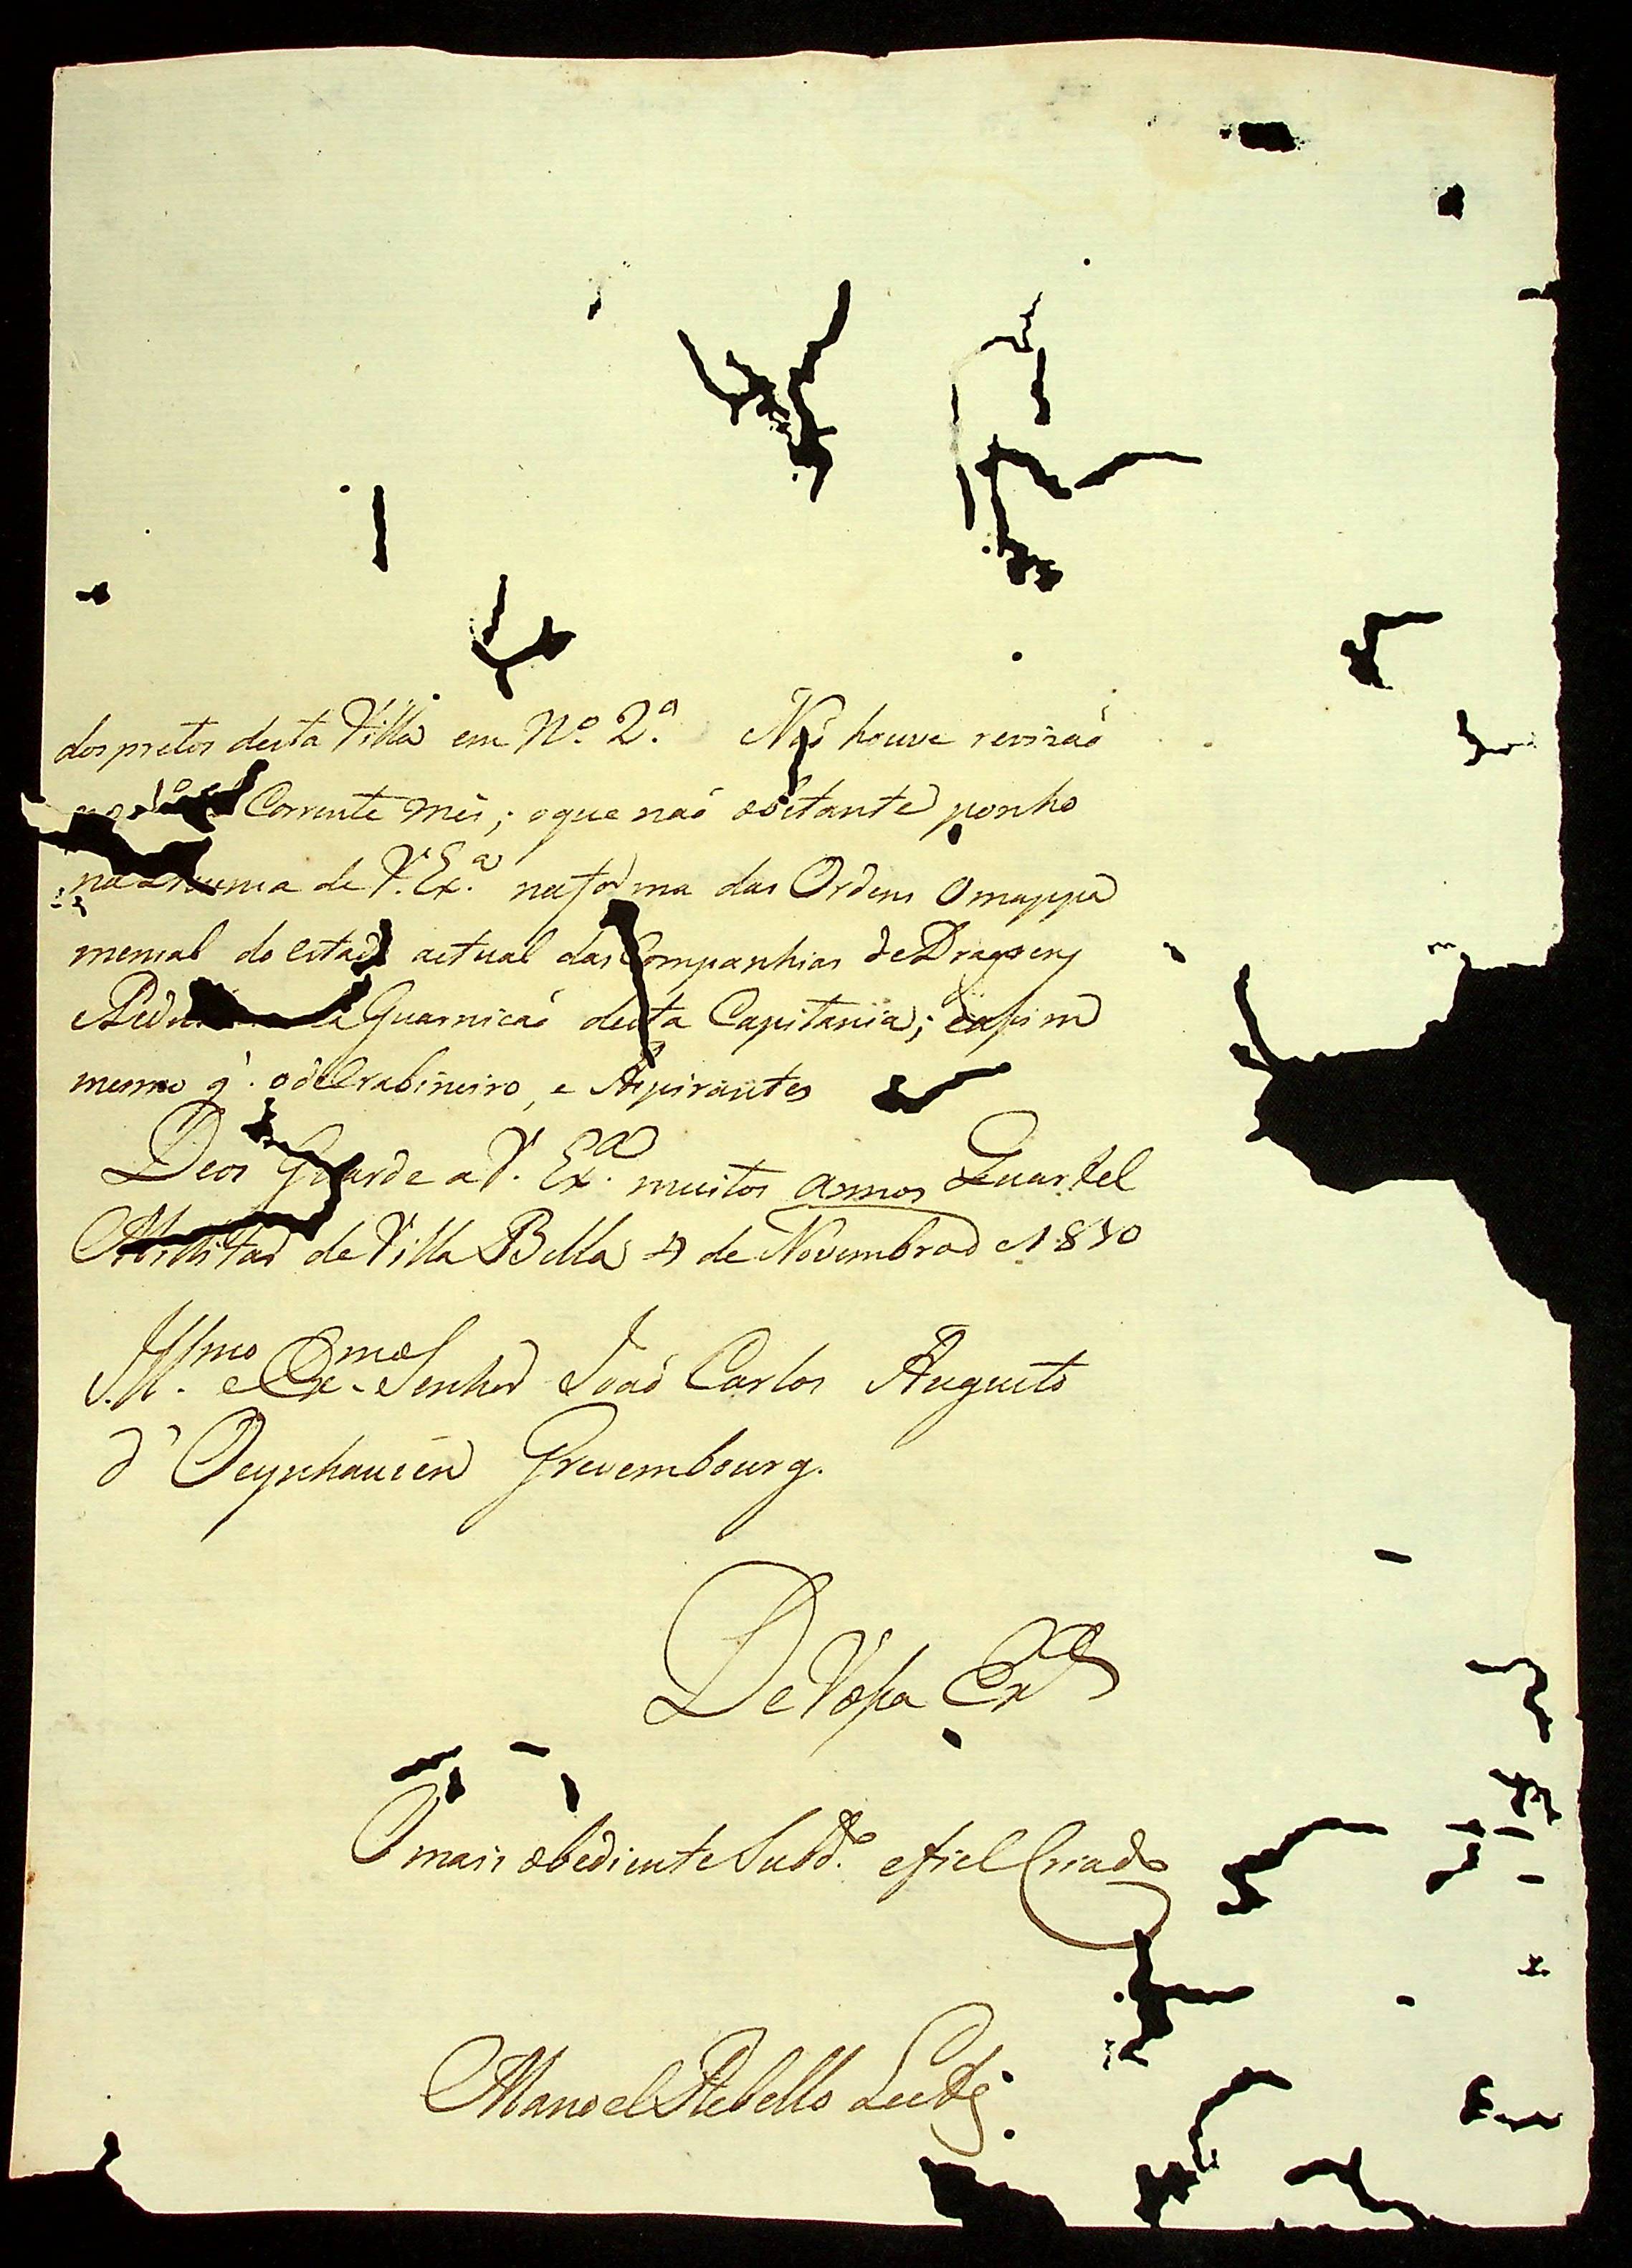 dos pretos desta Villa em Nº. 2º. Naõ houve revizaõ
Corrente mês; oque naõ obstante ponho
de V. Ex.ª na forma das Ordens o mappa
mensal do estado actual das Companhias de Dragoens
Guarnicaõ desta Capitania; e assim
mesmo q'. o de Crabineiro, e Aspirantes
Deos Guarde a V. Ex.ª muitos annos Quartel
Millitar de Villa Bella de Novembro de 1810
Ill.mo e Ex.mo Senhor Joaõ Carlos Augusto
d'Oeynhausen Grevembourg.
De Vossa Ex.ª
O mais obediente Subd.º e fiel Criado
Manoel Rebello